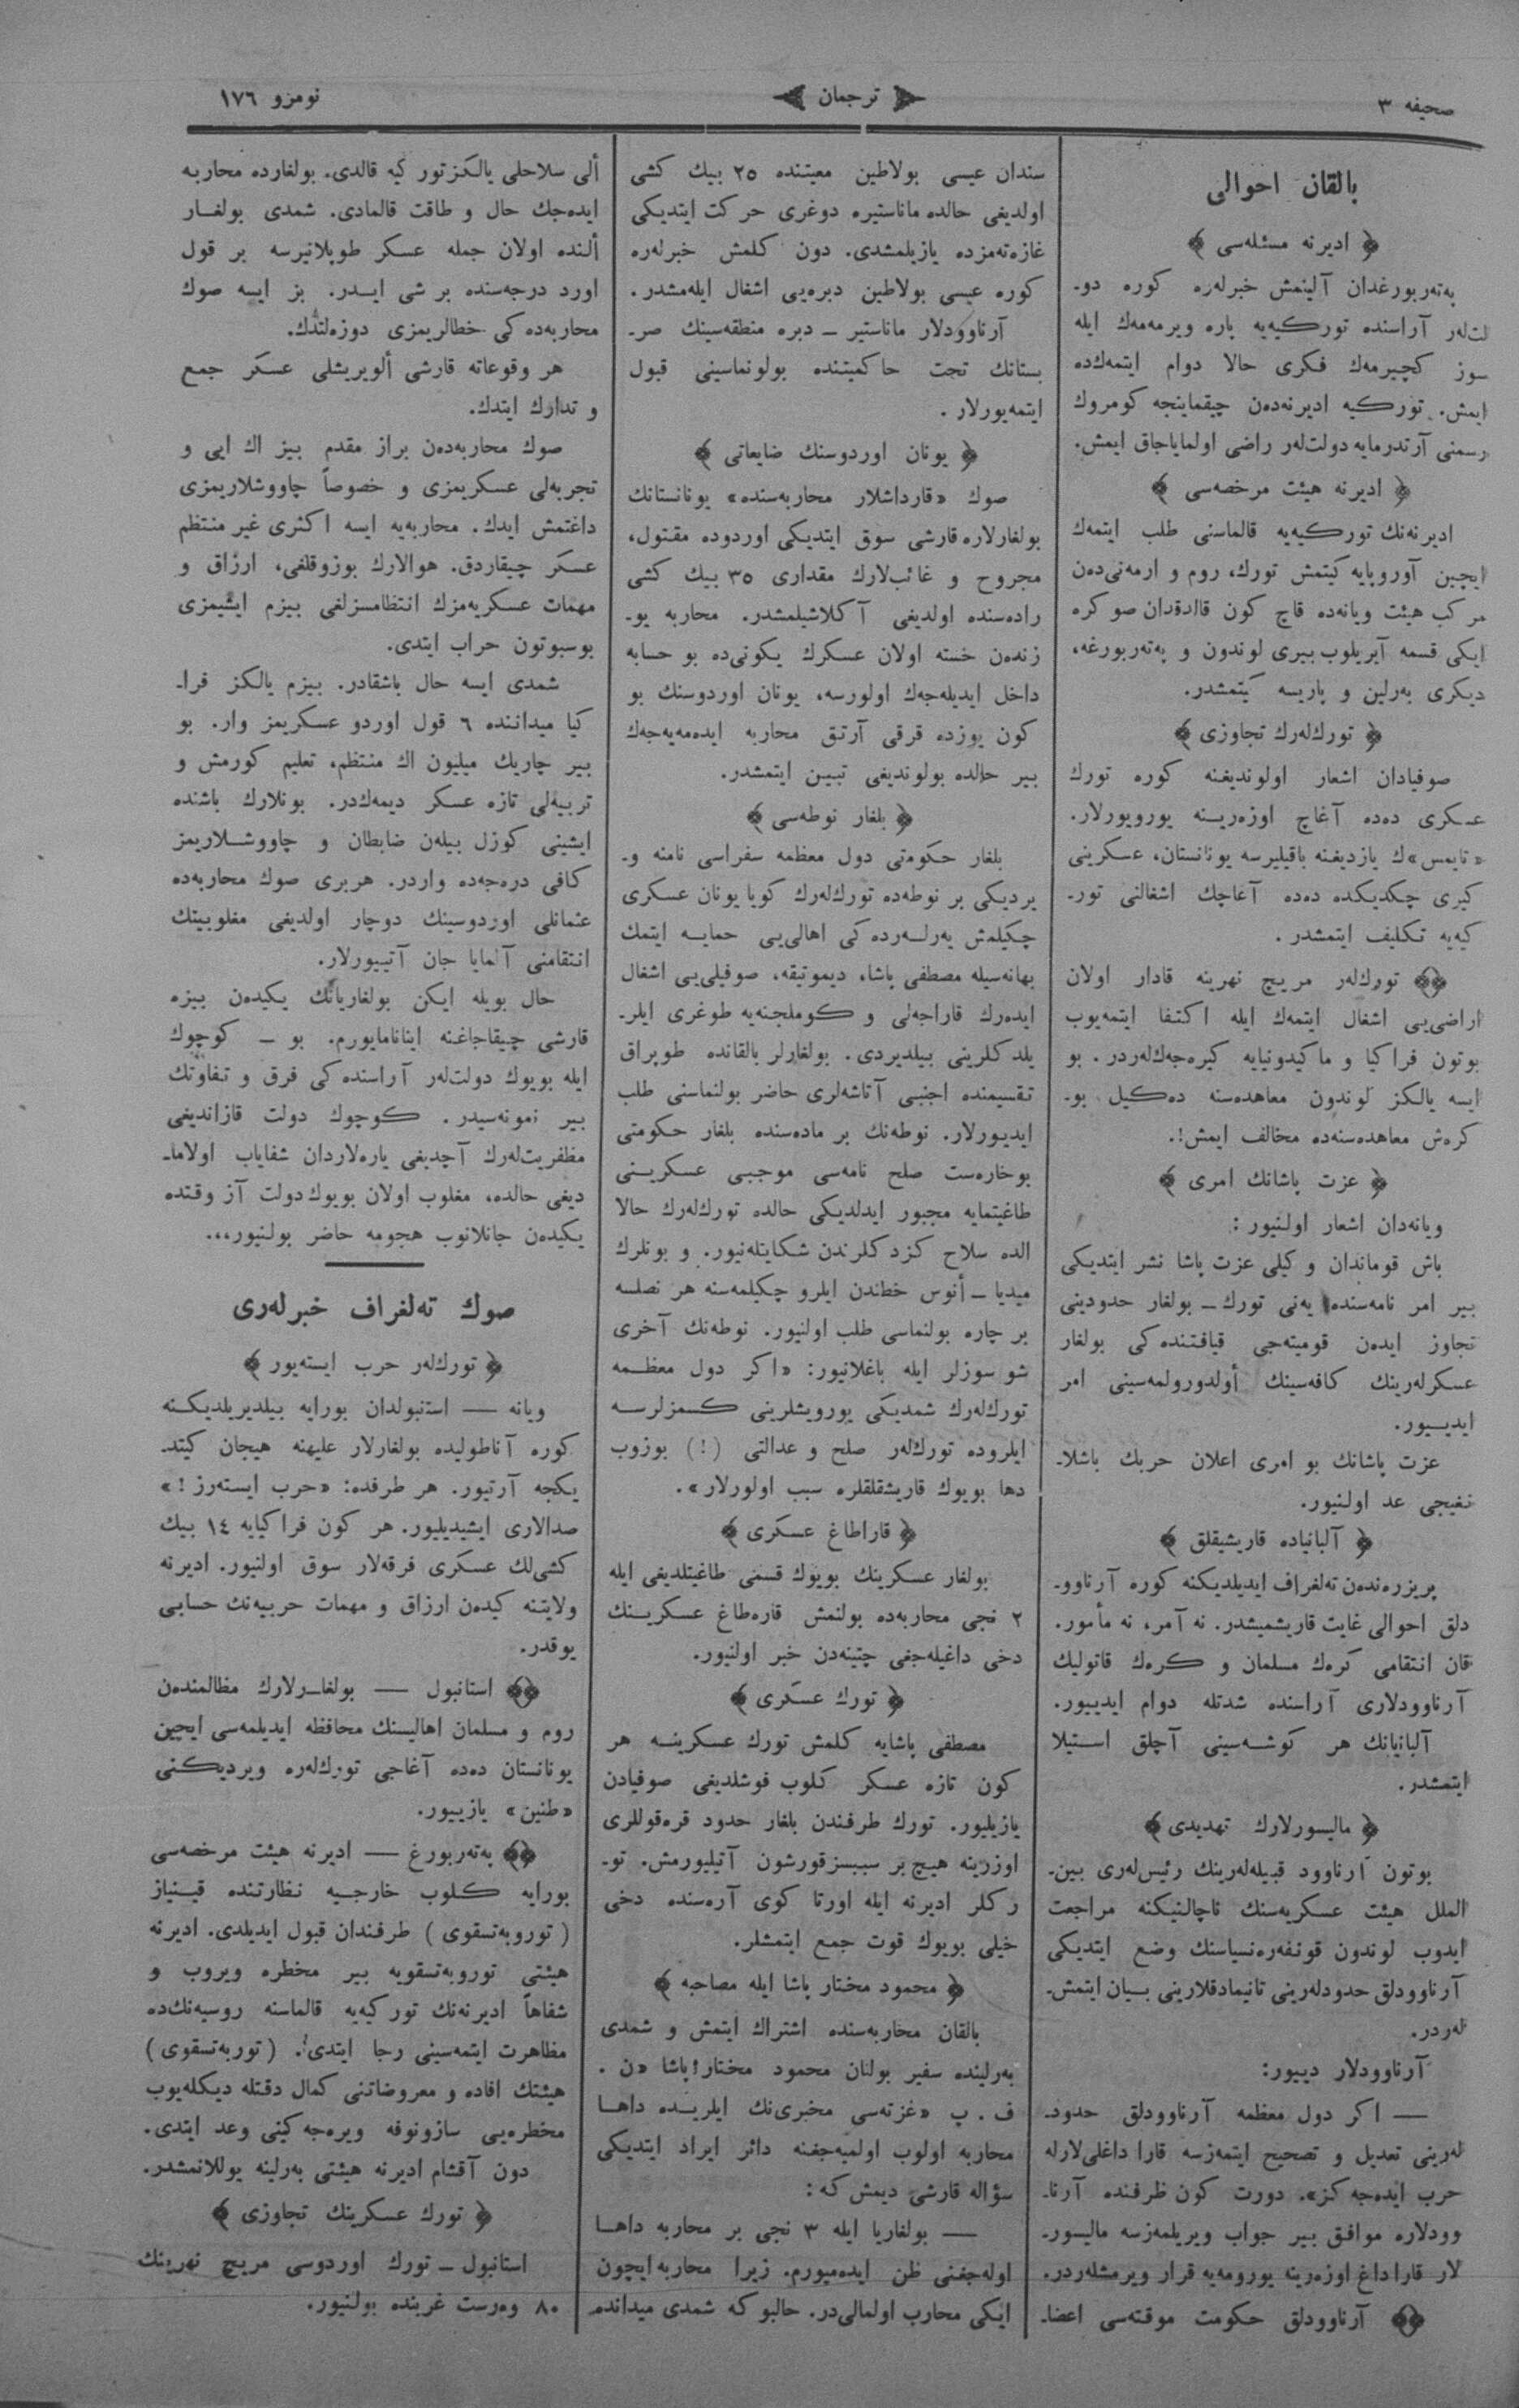 صحیفه ۳
ترجمان
نومرو ۱۷٦
بالقان احوالی
﴿ ادیرنه مسئله‌سی ﴾
په‌ته‌ربورغدان آلینمش خبرلەرە كورە دو-
لت‌لەر آراسنده تورکیه‌یه پارە ویرمەمەك ایله
سوز کچیرمەك فکری حالا دوام ایتمەك‌ده
ایمش. تورکیه ادیرنەدەن چیقماینجه کومروك
رسمنی آرتدرمایه دولت‌لەر راضی اولمایاجاق ایمش.
﴿ ادیرنه هیئت مرخصه‌سی ﴾
ادیرنەنك تورکیه‌یه قالماسنی طلب ایتمەك
ایچین آوروپایه کیتمش تورك، روم و ارمەنی‌دەن
مرکب هیئت ویانه‌ده قاچ کون قالدقدان صوکره
ایکی قسمه آیریلوب بیری لوندون و په‌ته‌ربورغه،
دیکری بەرلین و پاریسه کیتمشدر.
﴿ تورك‌لەرك تجاوزی ﴾
صوفیادان اشعار اولوندیغنه کوره تورك
عسکری دەدە آغاچ اوزەرینه یورویورلار.
«تایمس»ك یازدیغنه باقیلیرسه یونانستان، عسکرینی
کیری چکدیکده دەدە آغاچك اشغالنی تور-
کیه‌یه تکلیف ایتمشدر.
تورك‌لەر مریچ نهرینه قادار اولان
اراضی‌یی اشغال ایتمەك ایله اکتفا ایتمەیوب
بوتون فراکیا و ماکیدونیایه کیرەجەك‌لەردر. بو
ایسه یالکز لوندون معاهدەسنه دەکیل بو-
کرەش معاهدەسنه‌ده مخالف ایمش!.
﴿ عزت پاشانك امری ﴾
ویانه‌دان اشعار اولنیور:
باش قوماندان وکیلی عزت پاشا نشر ایتدیکی
بیر امر نامەسنده یەنی تورك - بولغار حدودینی
تجاوز ایدەن قومیته‌جی قیافتنده‌کی بولغار
عسکرلەرینك کافەسینك أولدورولمەسینی امر
ایدییور.
عزت پاشانك بو امری اعلان حربك باشلا-
نغیجی عد اولنیور.
﴿ آلبانیاده قاریشیقلق ﴾
پریزرەندەن تەلغراف ایدیلدیکنه کوره آرناوو-
دلق احوالی غایت قاریشمیشدر. نه آمر، نه مأمور.
قان انتقامی کرەك مسلمان و کرەك قاتولیك
آرناوودلاری آراسنده شدتله دوام ایدییور.
آلبانیانك هر کوشەسینی آچلق استیلا
ایتمشدر.
﴿ مالیسورلارك تهدیدی ﴾
بوتون آرناوود قبیلەلەرینك رئیس‌لەری بین-
الملل هیئت عسکریەسنك ناچالنیکنه مراجعت
ایدوب لوندون قونفەرەنسیاسنك وضع ایتدیکی
آرناوودلق حدودلەرینی تانیمادقلارینی بیان ایتمش-
لەردر.
آرناوودلار دییور:
— اکر دول معظمه آرناوودلق حدود-
لەرینی تعدیل و تصحیح ایتمەزسه قارا داغلی‌لارله
حرب ایدەجەکز». دورت کون ظرفنده آرنا-
وودلاره موافق بیر جواب ویریلمەزسه مالیسور-
لار قارا داغ اوزەرینه یورومەیه قرار ویرمشلەردر.
آرناوودلق حکومت موقته‌سی اعضا-
سندان عیسی بولاطین معیتنده ۲۵ بیك کشی
اولدیغی حالده ماناستیره دوغری حرکت ایتدیکی
غازەتەمزدە یازیلمشدی. دون کلمش خبرلەرە
کوره عیسی بولاطین دبرەیی اشغال ایلەمشدر.
آرناوودلار ماناستیر - دبره منطقەسینك صر-
بستانك تحت حاکمیتنده بولونماسینی قبول
ایتمەیورلار.
﴿ یونان اوردوسنك ضایعاتی ﴾
صوك «قارداشلار محاربەسنده» یونانستانك
بولغارلاره قارشی سوق ایتدیکی اوردوده مقتول،
مجروح و غائب‌لارك مقداری ۳۵ بیك کشی
رادەسنده اولدیغی آکلاشیلمشدر. محاربه یو-
زندەن خسته اولان عسکرك یکونی‌ده بو حسابه
داخل ایدیلەجەك اولورسه، یونان اوردوسنك بو
کون یوزده قرقی آرتق محاربه ایدەمەیەجەك
بیر حالده بولوندیغی تبین ایتمشدر.
﴿ بلغار نوطەسی ﴾
بلغار حکومتی دول معظمه سفراسی نامنه و-
یردیکی بر نوطەده تورك‌لەرك کویا یونان عسکری
چکیلمش یەرلەرده‌کی اهالی‌یی حمایه ایتمك
بهانەسیله مصطفی پاشا، دیموتیقه، صوفیلی‌یی اشغال
ایدەرك قاراجەلی و کوملجنەیه طوغری ایلر-
یلدکلرینی بیلدیردی. بولغارلر بالقانده طوپراق
تقسیمنده اجنبی آتاشەلری حاضر بولنماسنی طلب
ایدیورلار. نوطەنك بر مادەسنده بلغار حکومتی
بوخارەست صلح نامەسی موجبی عسکرینی
طاغیتمایه مجبور ایدلدیکی حالده تورك‌لەرك حالا
الده سلاح کزدکلرندن شکایتلەنیور. و بونلرك
میدیا - أنوس خطندن ایلرو چکیلمەسنه هر نصلسه
بر چاره بولنماسی طلب اولنیور. نوطەنك آخری
شو سوزلر ایله باغلانیور: «اکر دول معظمه
تورك‌لەرك شمدیکی یورویشلرینی کسمزلرسه
ایلروده تورك‌لەر صلح و عدالتی (!) بوزوب
دها بویوك قاریشقلقلره سبب اولورلار».
﴿ قاراطاغ عسکری ﴾
بولغار عسکرینك بویوك قسمی طاغیتلدیغی ایله
۲ نجی محاربەده بولنمش قارەطاغ عسکرینك
دخی داغیلەجغی چتینەدن خبر اولنیور.
﴿ تورك عسکری ﴾
مصطفی پاشایه کلمش تورك عسکرینه هر
کون تازه عسکر کلوب قوشلدیغی صوفیادن
یازیلیور. تورك طرفندن بلغار حدود قرەقوللری
اوزرینه هیچ بر سببسز قورشون آتیلیورمش. تو-
رکلر ادیرنه ایله اورتا کوی آرەسنده دخی
خیلی بویوك قوت جمع ایتمشلر.
﴿ محمود مختار پاشا ایله مصاحبه ﴾
بالقان محاربەسنده اشتراك ایتمش و شمدی
بەرلینده سفیر بولنان محمود مختار پاشا «ن.
ف. پ «غزتەسی مخبری‌نك ایلریده داها
محاربه اولوب اولمیەجغنه دائر ایراد ایتدیکی
سؤاله قارشی دیمش که:
— بولغاریا ایله ۳ نجی بر محاربه داها
اولەجغنی ظن ایدەمیورم. زیرا محاربه ایچون
ایکی محارب اولمالی‌در. حالبوکه شمدی میداندە
ألی سلاحلی یالکز تورکیه قالدی. بولغارده محاربه
ایدەجك حال و طاقت قالمادی. شمدی بولغار
ألنده اولان جمله عسکر طوپلانیرسه بر قول
اورد درجەسنده بر شی ایدر. بز ایسه صوك
محاربەده‌کی خطالریمزی دوزەلتدك.
هر وقوعاته قارشی ألویریشلی عسکر جمع
و تدارك ایتدك.
صوك محاربەدەن براز مقدم بیز اك ایی و
تجربەلی عسکریمزی و خصوصاً چاووشلاریمزی
داغتمش ایدك. محاربەیه ایسه اکثری غیر منتظم
عسکر چیقاردق. هوالارك بوزوقلغی، ارزاق و
مهمات عسکریەمزك انتظامسزلغی بیزم ایشیمزی
بوسبوتون خراب ایتدی.
شمدی ایسه حال باشقادر. بیزم یالکز فرا-
کیا میداننده ٦ قول اوردو عسکریمز وار. بو
بیر چاریك میلیون اك منتظم، تعلیم کورمش و
تربیەلی تازه عسکر دیمەك‌در. بونلارك باشنده
ایشینی کوزل بیلەن ضابطان و چاووشلاریمز
کافی درەجەده واردر. هربری صوك محاربەده
عثمانلی اوردوسینك دوچار اولدیغی مغلوبیتك
انتقامنی آلمایا جان آتییورلار.
حال بویله ایکن بولغاریانك یکیدەن بیزه
قارشی چیقاجاغنه اینانامایورم. بو - کوچوك
ایله بویوك دولت‌لەر آراسنده‌کی فرق و تفاوتك
بیر نمونەسیدر. کوچوك دولت قازاندیغی
مظفریت‌لەرك آچدیغی یارەلاردان شفایاب اولاما-
دیغی حالده، مغلوب اولان بویوك دولت آز وقتده
یکیدەن جانلانوب هجومه حاضر بولنیور...
صوك تەلغراف خبرلەری
﴿ تورك‌لەر حرب ایستەیور ﴾
ویانه — استنبولدان بورایه بیلدیریلدیکنه
کوره آناطولیده بولغارلار علیهنه هیجان کیتد-
یکجه آرتیور. هر طرفده: «حرب ایستەرز!»
صدالاری ایشیدیلیور. هر کون فراکیایه ۱٤ بیك
کشی‌لك عسکری فرقەلار سوق اولنیور. ادیرنه
ولایتنه کیدەن ارزاق و مهمات حربیەنك حسابی
یوقدر.
استانبول — بولغارلارك مظالمندەن
روم و مسلمان اهالیسنك محافظه ایدیلمەسی ایچین
یونانستان دەدە آغاجی تورك‌لەره ویردیکنی
«طنین» یازییور.
په‌ته‌ربورغ — ادیرنه هیئت مرخصەسی
بورایه کلوب خارجیه نظارتنده قینیاز
(توروبەتسقوی) طرفندان قبول ایدیلدی. ادیرنه
هیئتی توروبەتسقویه بیر مخطره ویروب و
شفاهاً ادیرنەنك تورکیەیه قالماسنه روسیەنك‌ده
مظاهرت ایتمەسینی رجا ایتدی. (توربەتسقوی)
هیئتك افاده و معروضاتنی کمال دقتله دیکلەیوب
مخطرەیی سازونوفه ویرەجەکینی وعد ایتدی.
دون آقشام ادیرنه هیئتی بەرلینه یوللانمشدر.
﴿ تورك عسکرینك تجاوزی ﴾
استانبول - تورك اوردوسی مریچ نهرینك
۸۰ وەرست غربنده بولنیور.